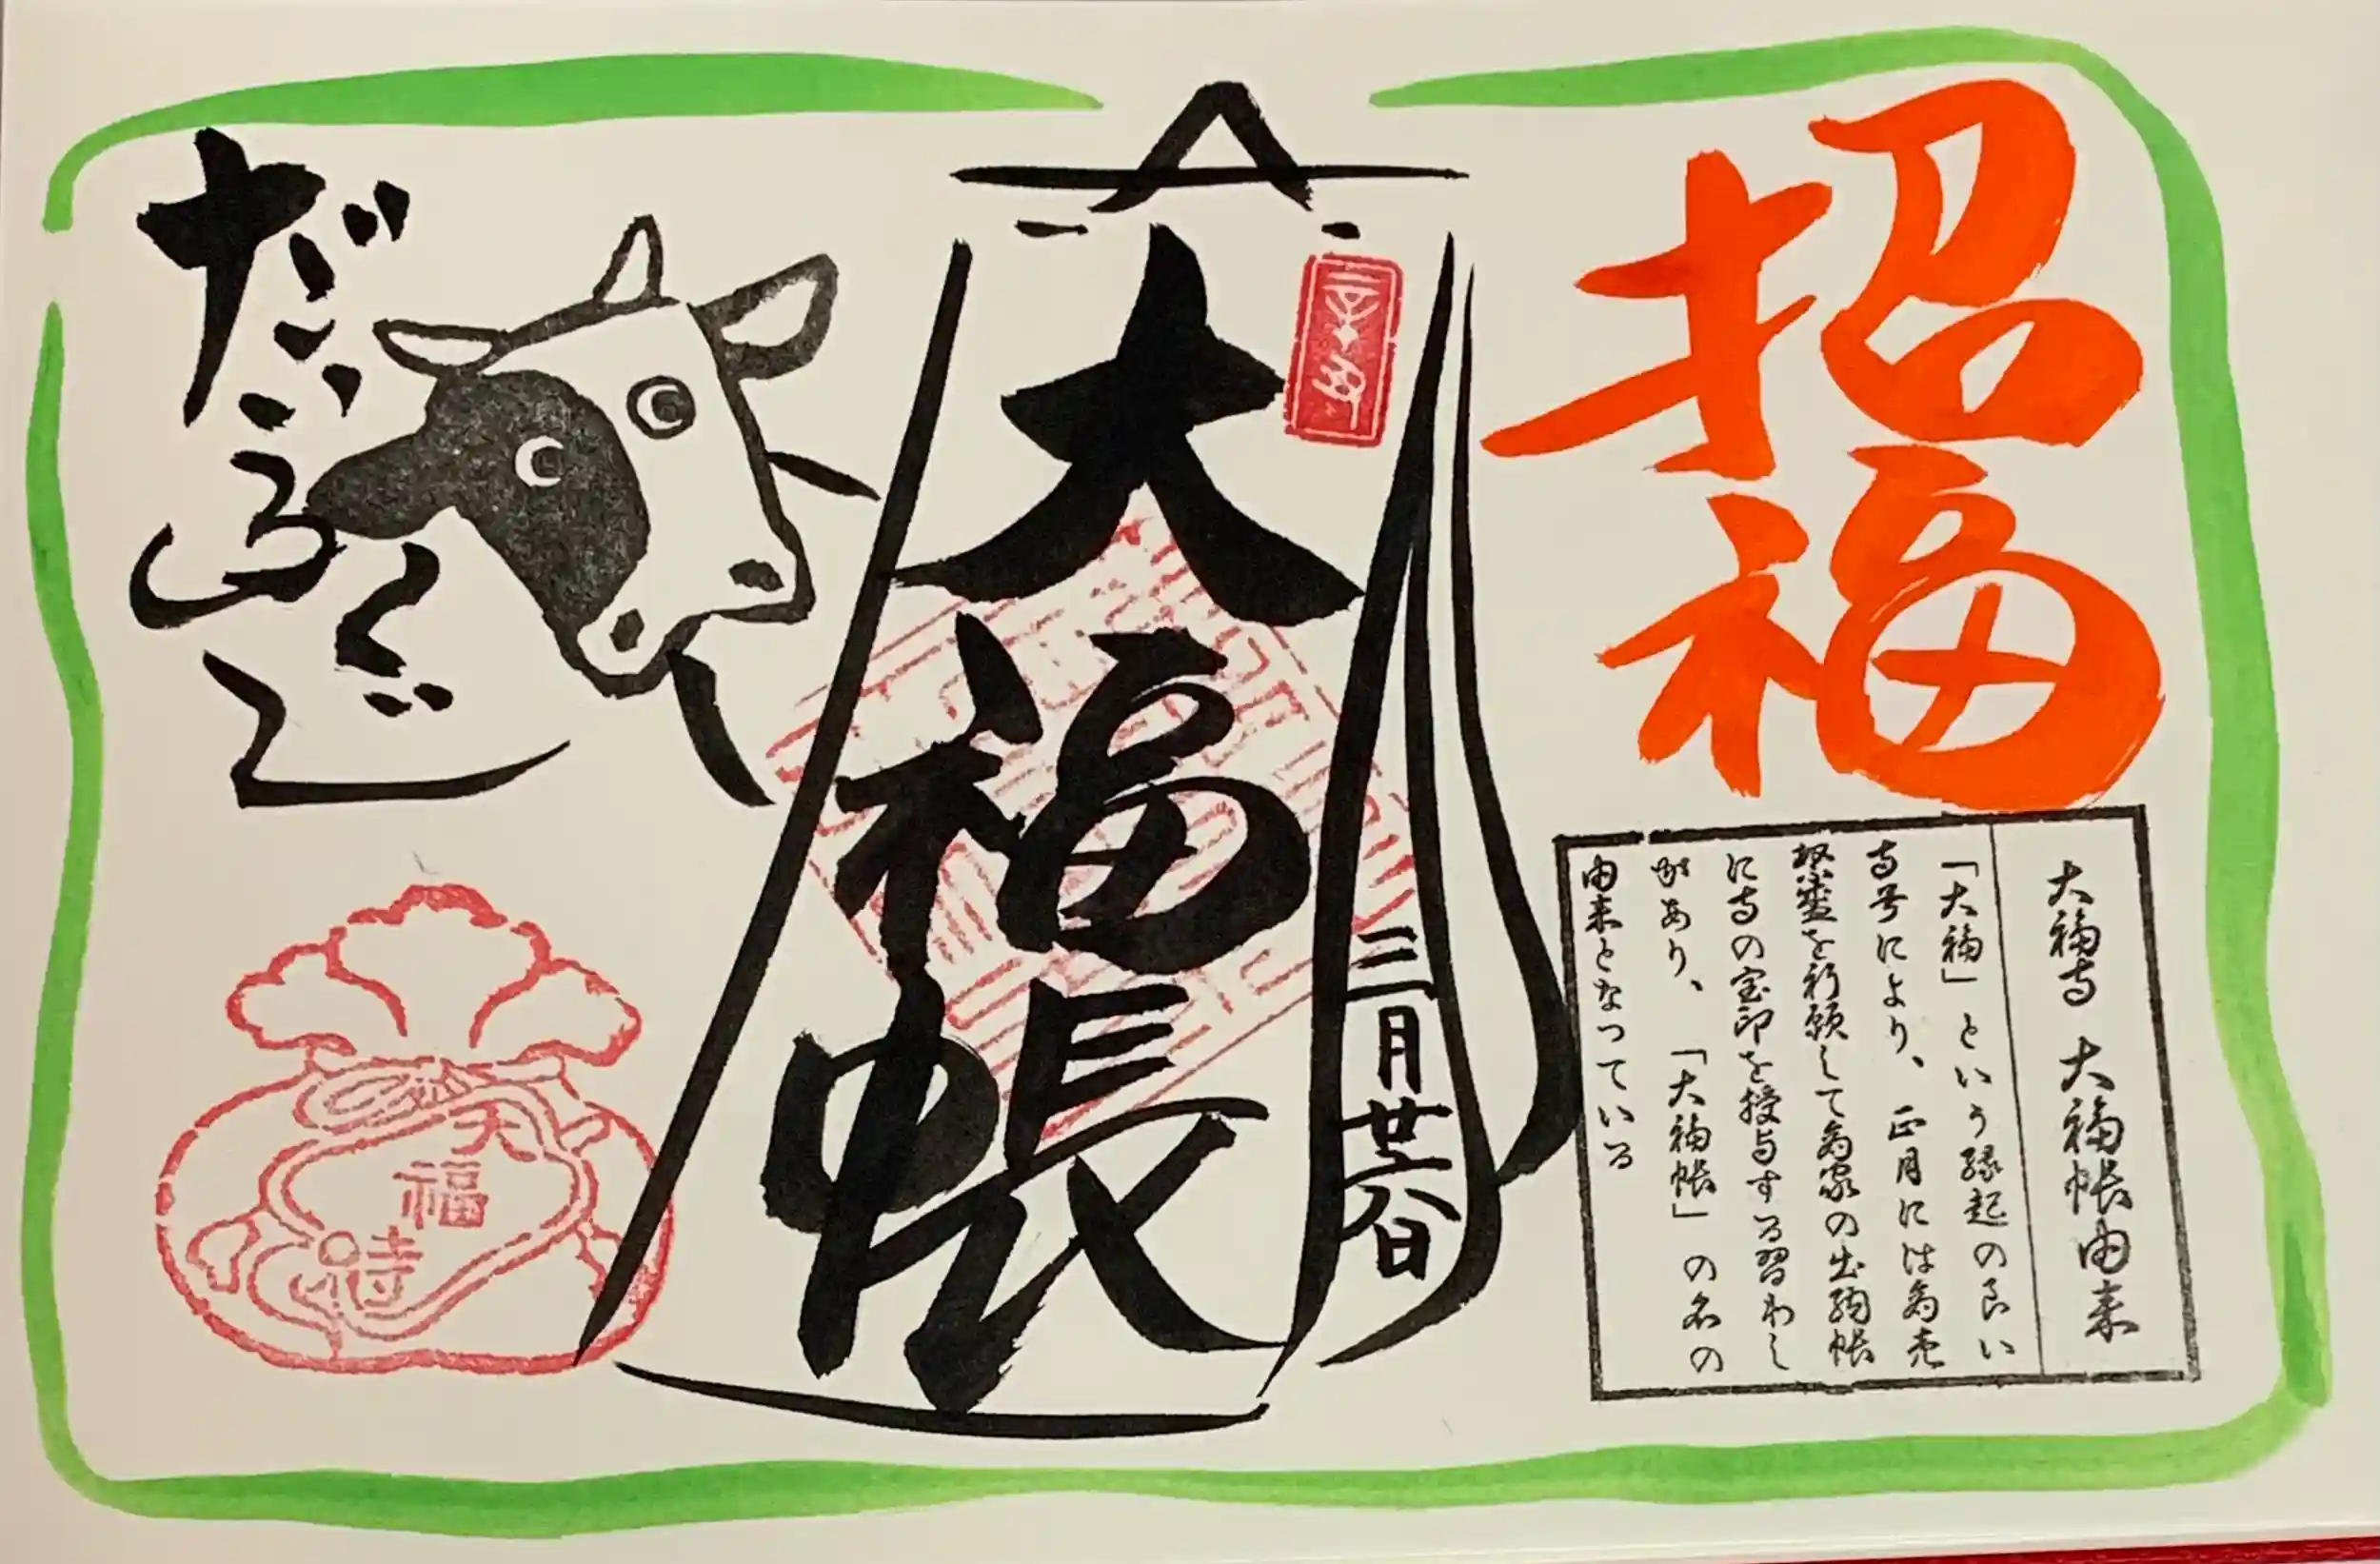 招福
大福寺 大福帳由来
「大福」という縁起の良い
寺号により、正月には商売
繁盛を祈願して商家の出納帳
に寺の宝印を授与する習わし
があり、「大福帳」の名の
由来となっている
大福帳
三月廿六日
だいふくじ
大福寺